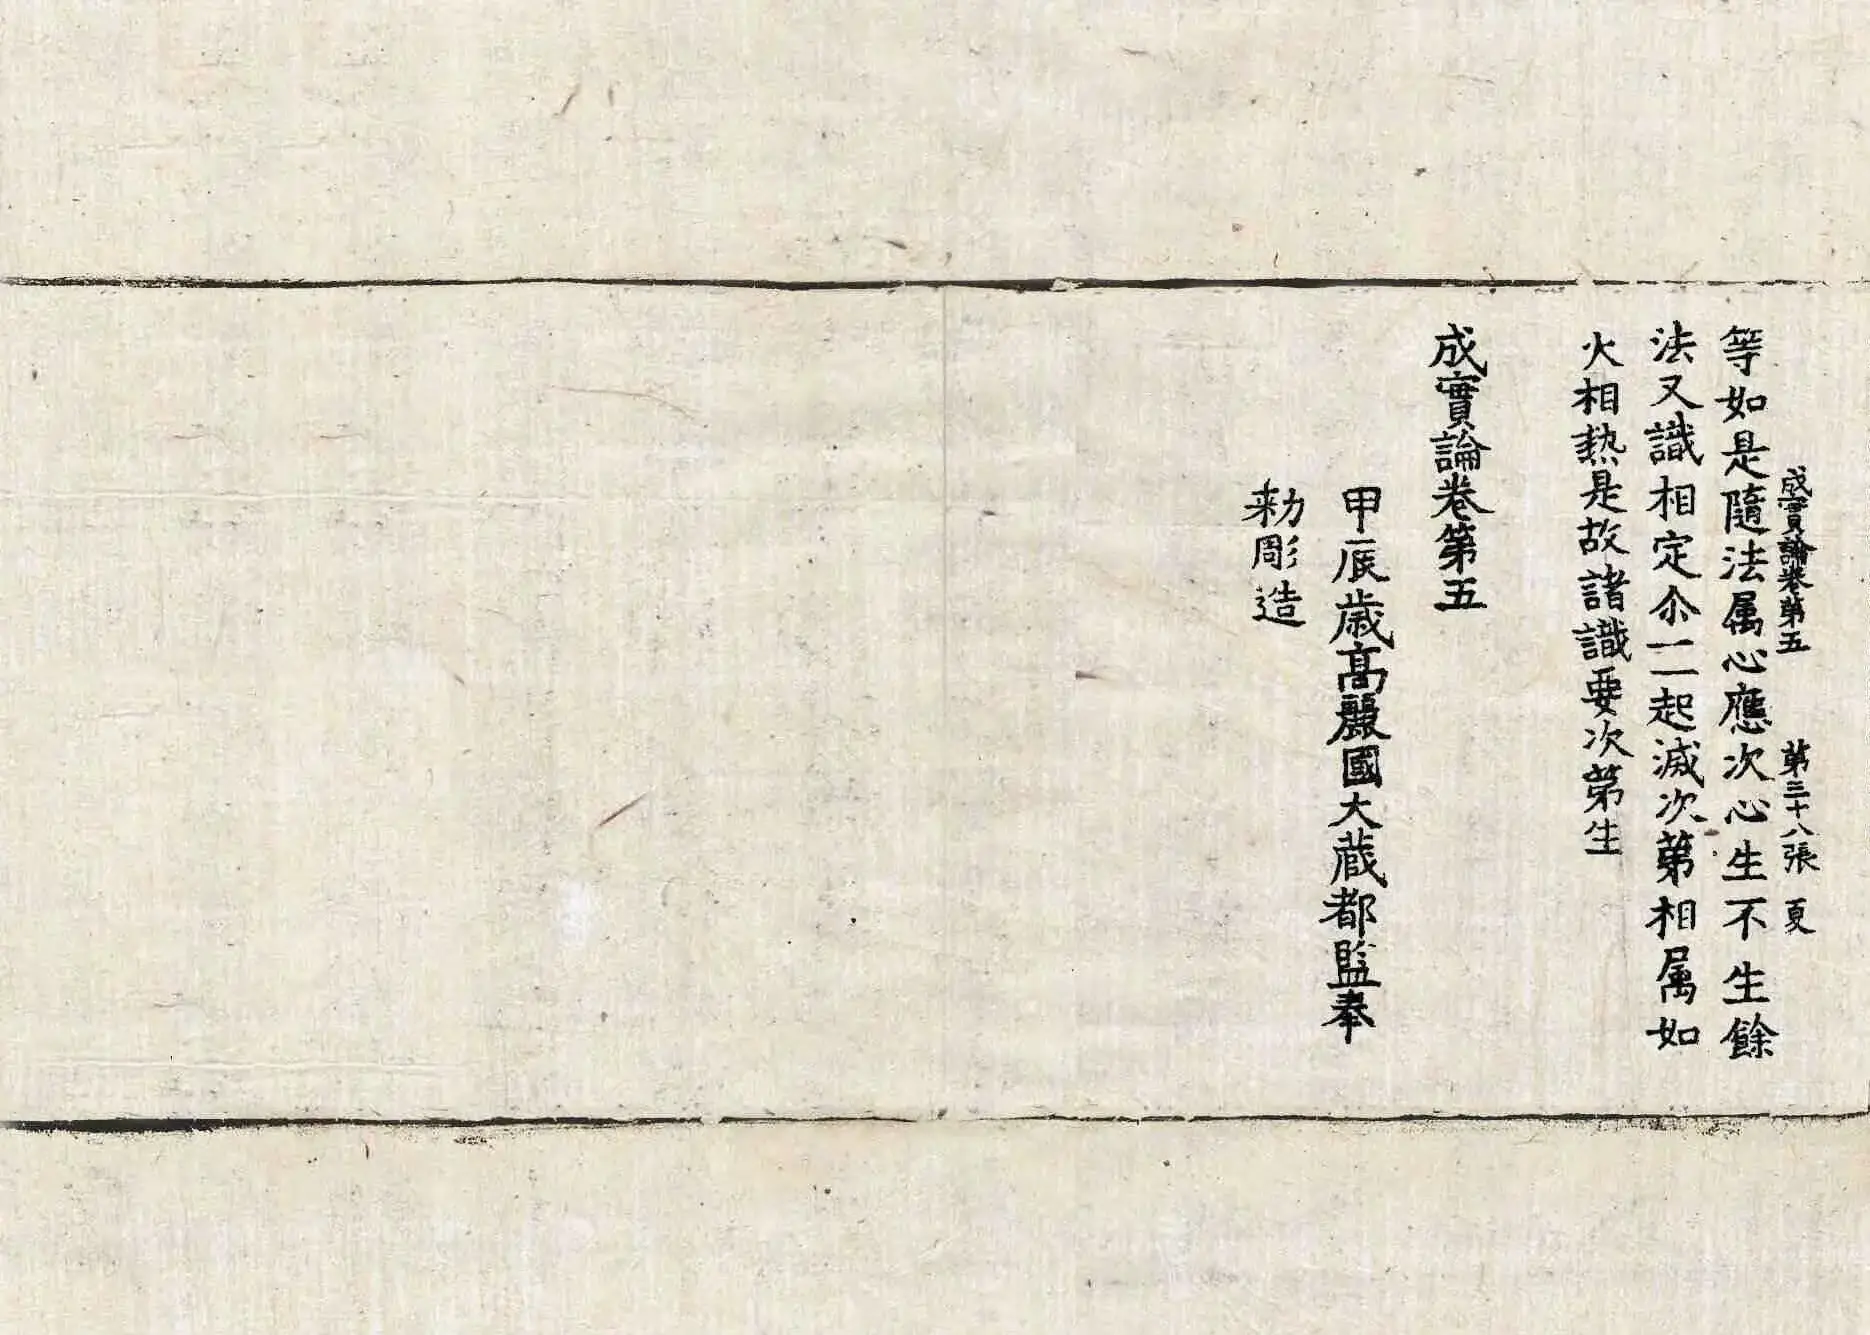 成實論卷第五 第三十八張 夏
等如是隨法属心應次心生不生餘
法又識相定尒一一起滅次第相属如
火相熱是故諸識要次第生
成實論卷第五
甲辰歲高麗國大藏都監奉
勑彫造